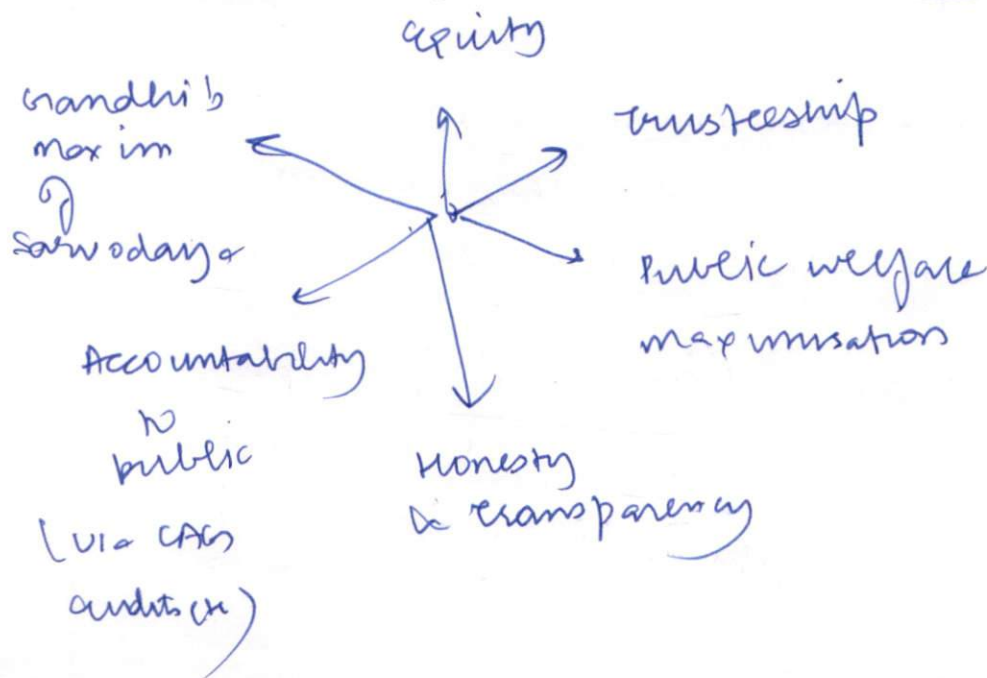 equity
Gandhi's
maxim
of
Sarvodaya
Trusteeship
Public welfare
maximisation
Accountability
to
public
(via CAG
audits etc)
Honesty
& transparency